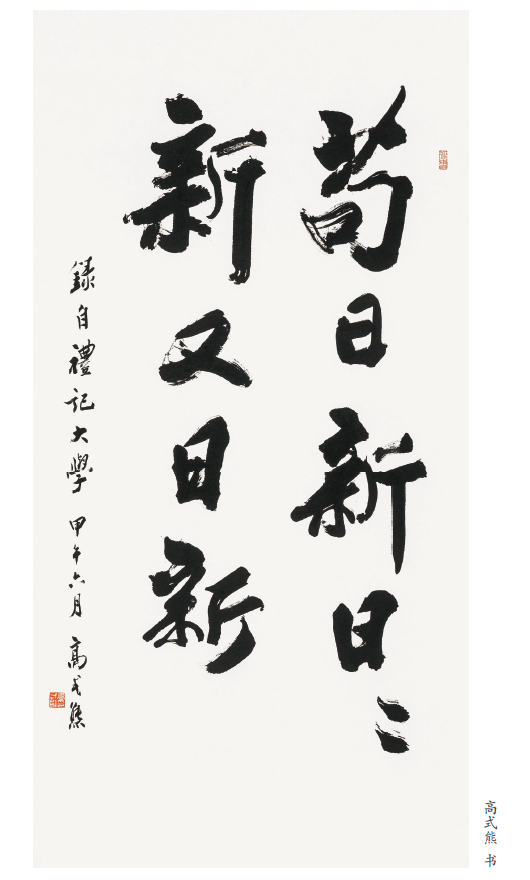 苟日新日〻
新又日新
錄自禮記大學 甲午六月 高式熊
高式熊 书